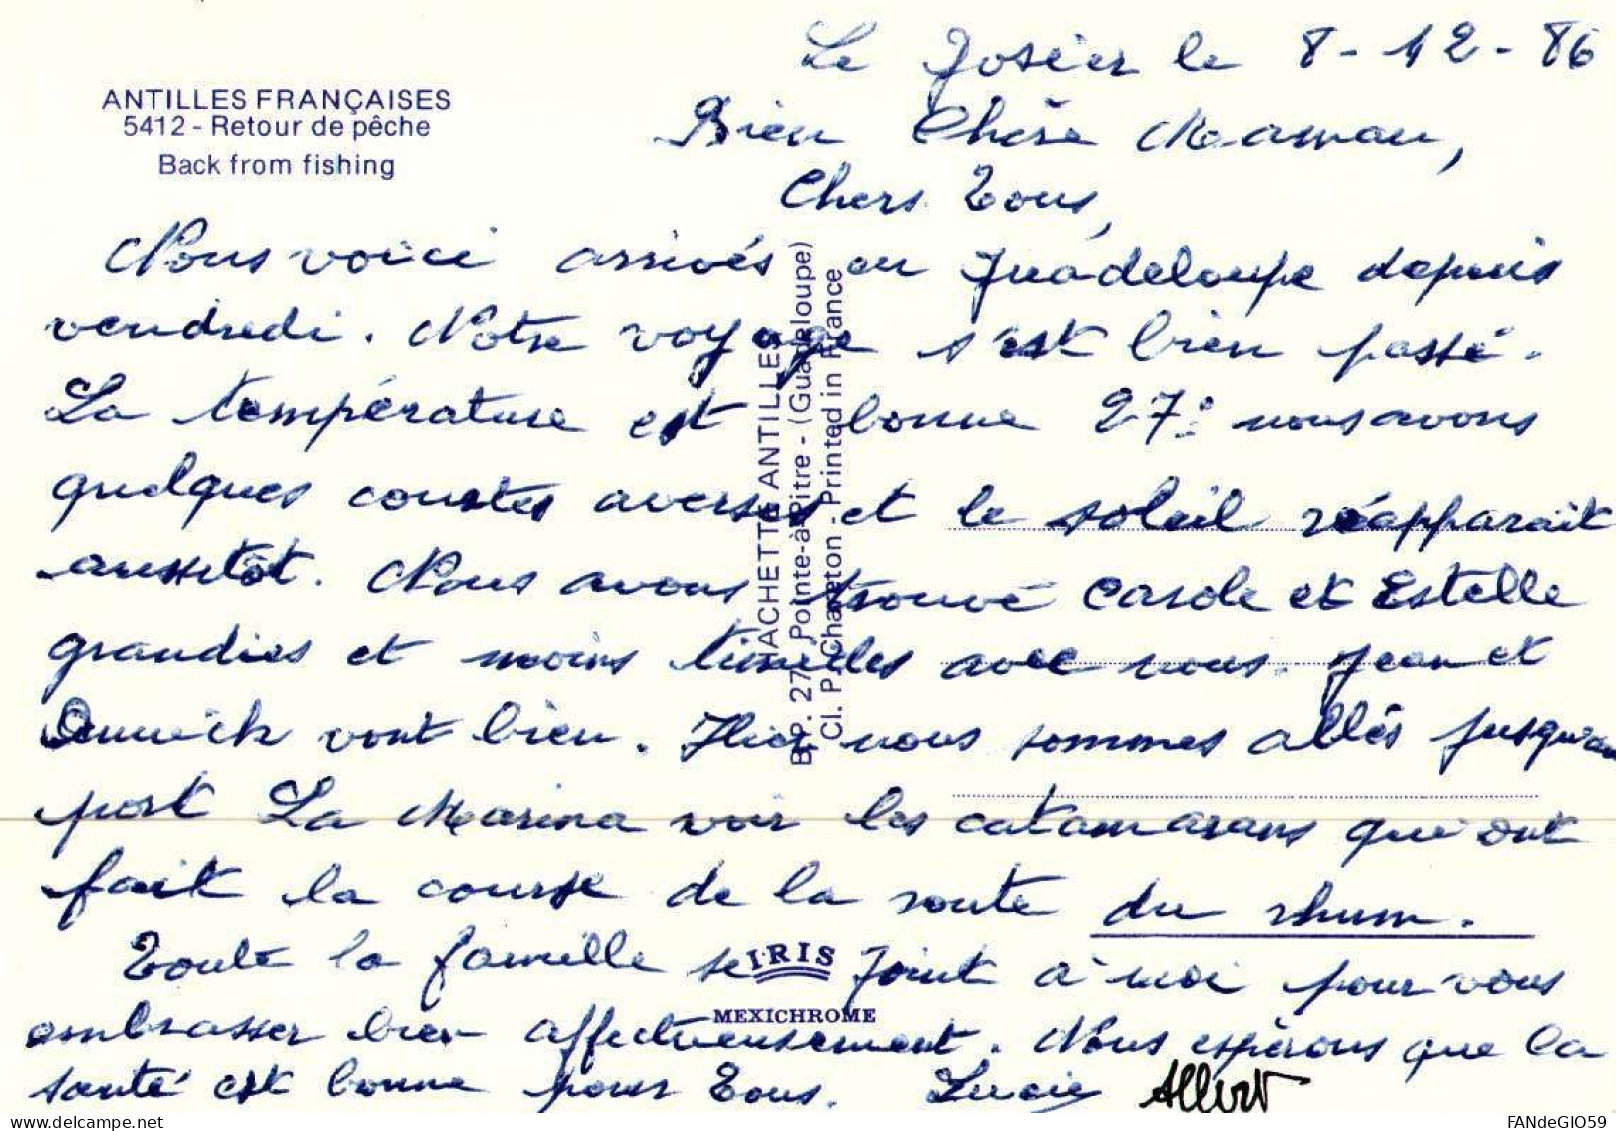 ANTILLES FRANÇAISES
5412 - Retour de pêche
Back from fishing
Le Gosier le 8-12-86
Bien Chère Maman,
Chers Tous,
Nous voici arrivés en Guadeloupe depuis
vendredi. Notre voyage s'est bien passé.
La température est bonne 27° nous avons
quelques courtes averses et le soleil réapparait
aussitôt. Nous avons trouvé Carole et Estelle
grandies et moins timides avec nous. Jean et
vont bien. Hier nous sommes allés jusqu'au
port La Marina voir les catamarans qui ont
fait la course de la route du rhum.
Toute la famille se joint à moi pour vous
embrasser bien affectueusement. Nous espérons que la
santé est bonne pour Tous. Lucie Albert
HACHETTE ANTILLES
B.P. 27 Pointe-à-Pitre - (Guadeloupe)
Cl. P. Charreton - Printed in France
IRIS
MEXICHROME
FANdeGIO59